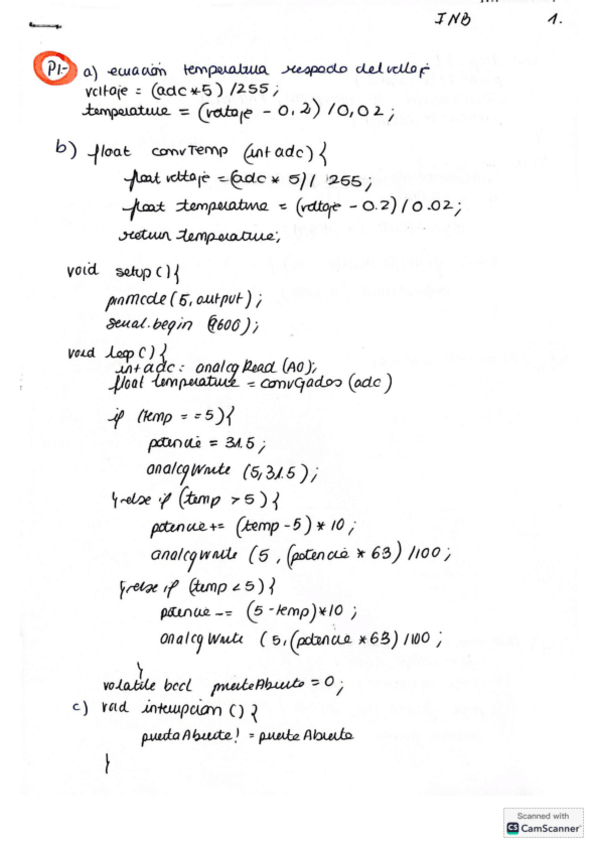 INB 1.
P1- a) ecuación temperatura respecto del voltaje
voltaje = (adc*5) /255;
temperature = (voltaje - 0,2) / 0,02;
b) float convTemp (int adc) {
float voltaje = (adc * 5) / 255;
float temperature = (voltaje - 0.2) / 0.02;
return temperature;
void setup () {
pinmode (5, output);
serial.begin (9600);
void loop () {
int adc: analog Read (A0);
float temperature = convGados (adc)
if (temp == 5) {
potencie = 31.5;
analogWrite (5, 31.5);
} else if (temp > 5) {
potencie += (temp - 5) * 10;
analogWrite (5, (potencie * 63) /100;
} else if (temp < 5) {
potencie -= (5 - temp) * 10;
analogWrite (5, (potencie * 63) /100;
}
volatile bool puerteAbierto = 0;
c) void interrupcion () {
puertaAbierte! = puerteAbierto
}
Scanned with
CS CamScanner